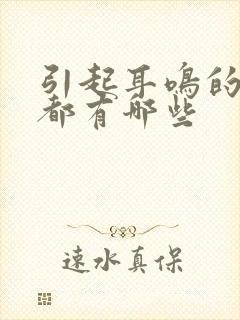 引起耳鸣的
都有哪些
速水真保